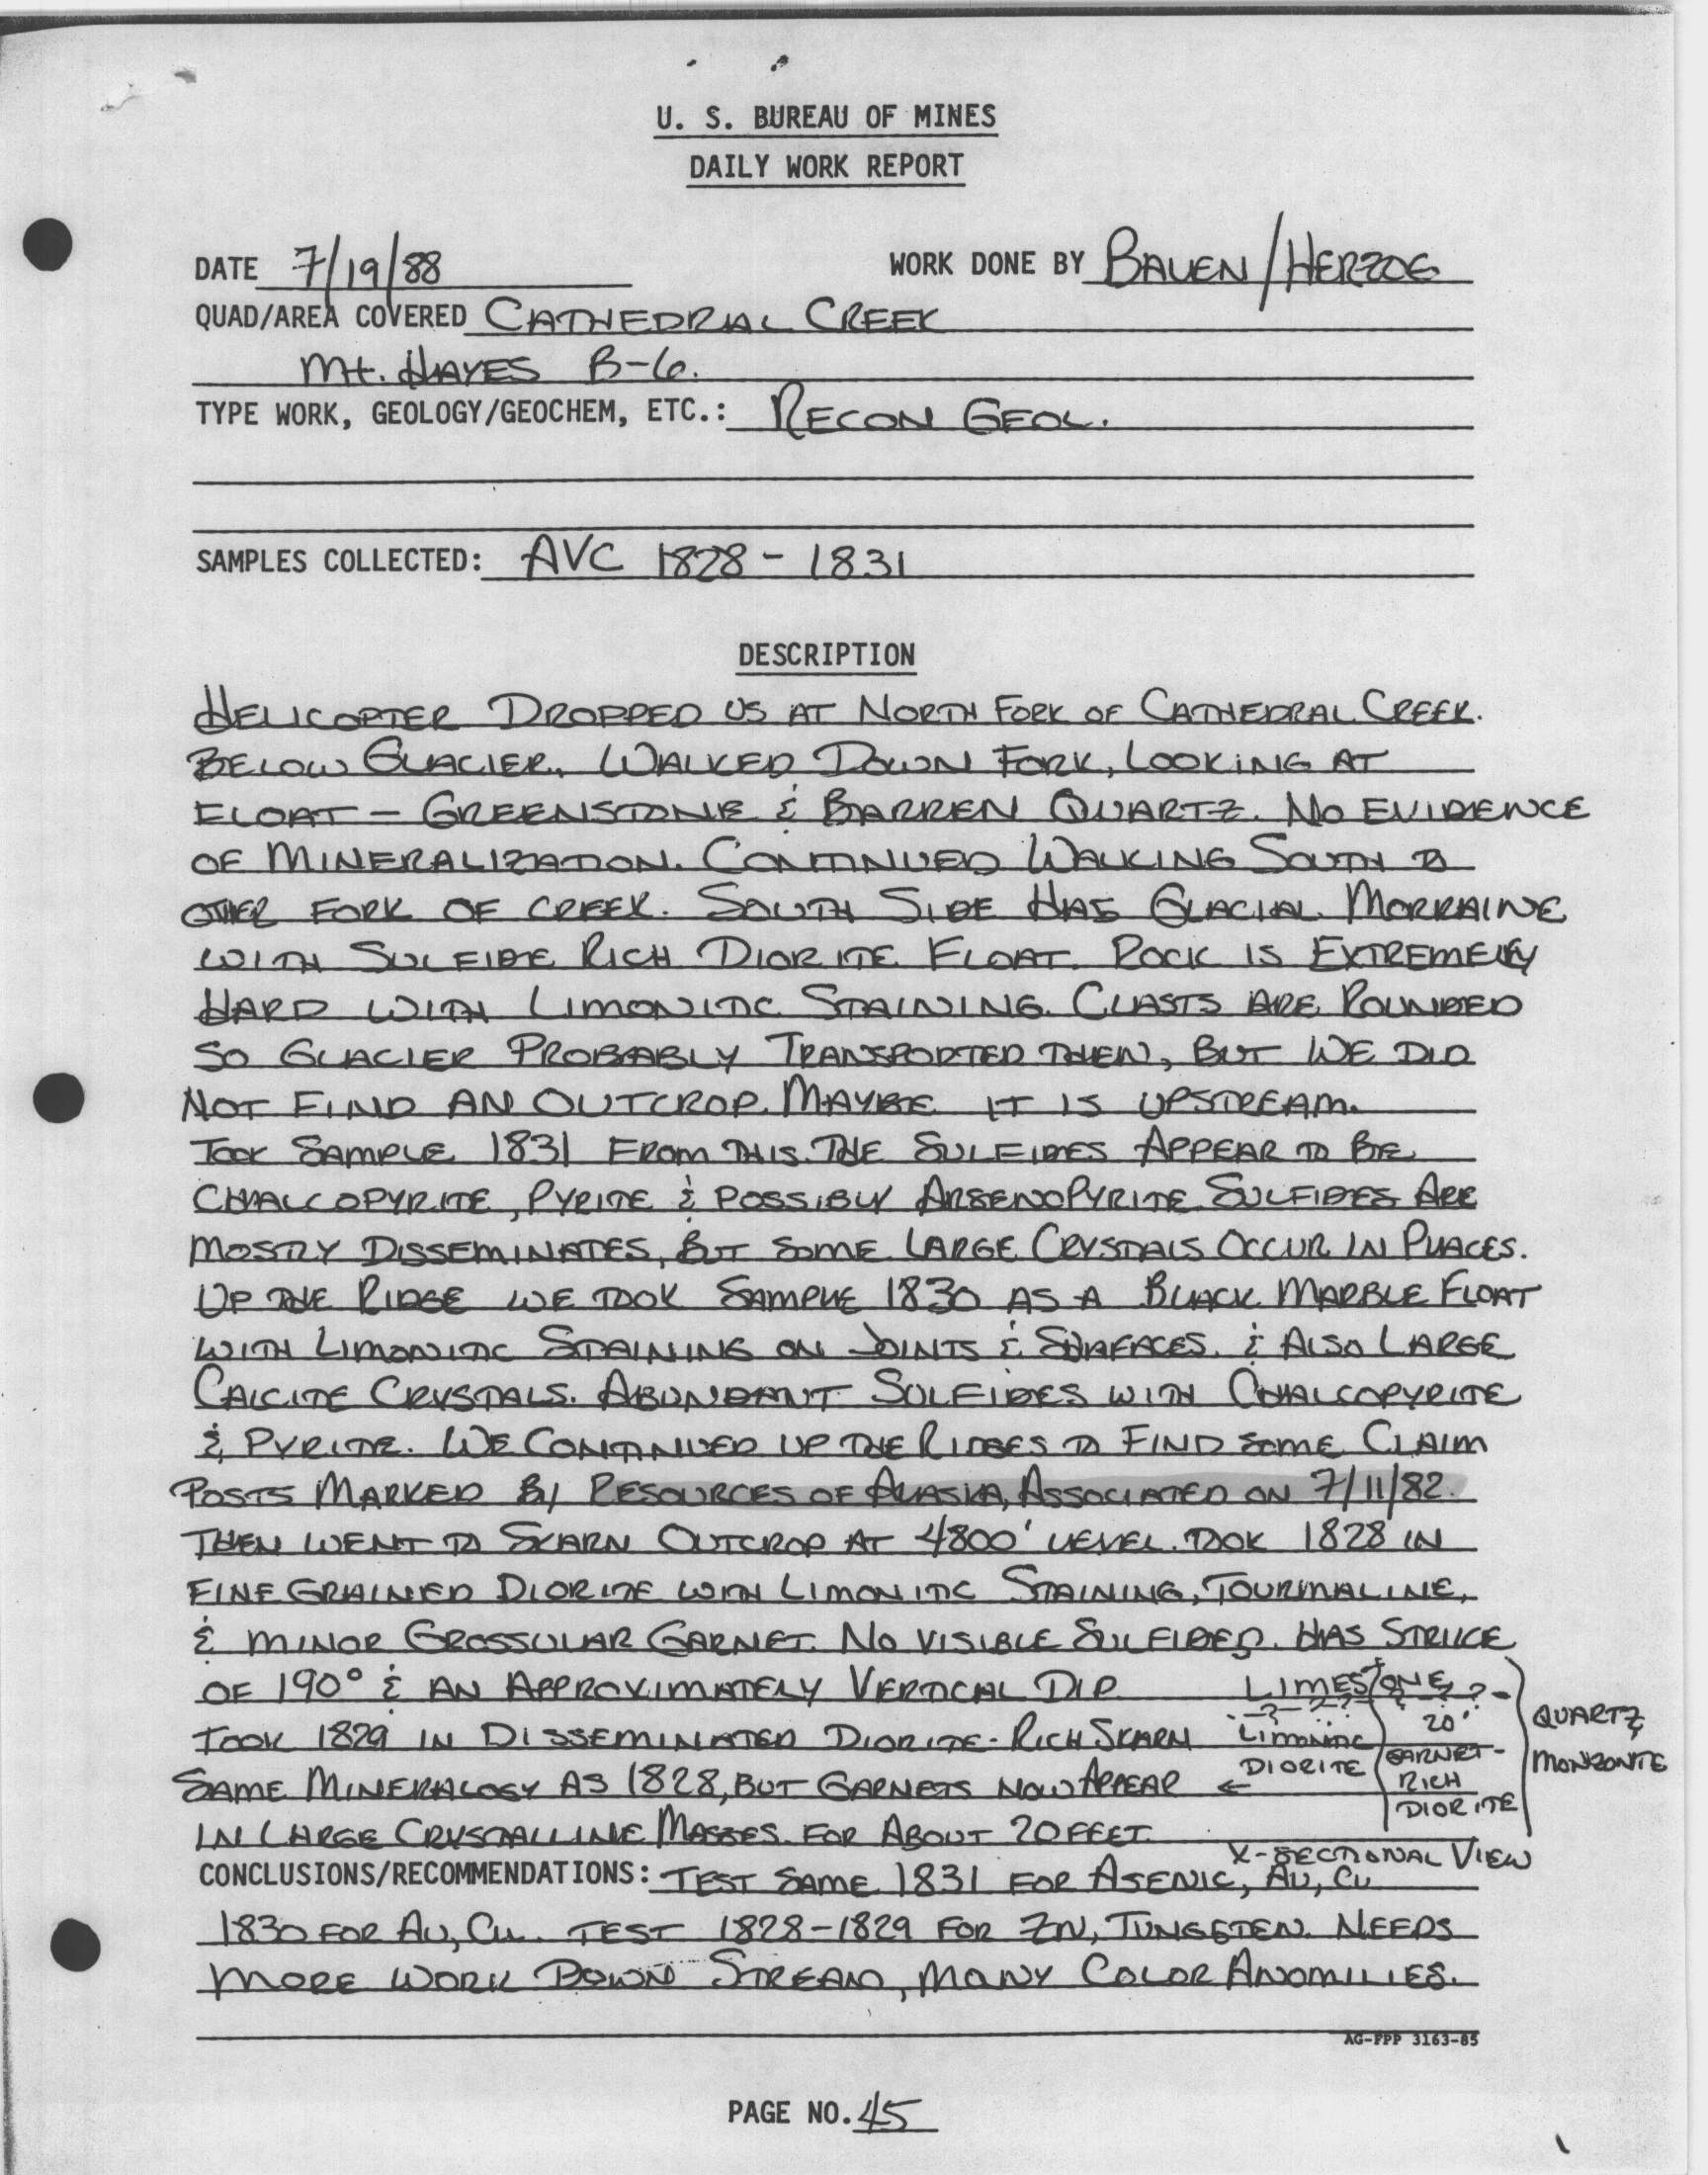 U. S. BUREAU OF MINES
DAILY WORK REPORT
DATE 7/19/88 WORK DONE BY BAUEN/HERZOG
QUAD/AREA COVERED CATHEDRIAL CREEK
Mt. HAYES B-6.
TYPE WORK, GEOLOGY/GEOCHEM, ETC.: RECON GEOL.
SAMPLES COLLECTED: AVC 1828 - 1831
DESCRIPTION
HELICOPTER DROPPED US AT NORTH FORK OF CATHEDRAL CREEK.
BELOW GLACIER. WALKED DOWN FORK, LOOKING AT
FLOAT - GREENSTONE & BARREN QUARTZ. NO EVIDENCE
OF MINERALIZATION. CONTINUED WALKING SOUTH TO
OTHER FORK OF CREEK. SOUTH SIDE HAS GLACIAL MORRAINE
WITH SULFIDE RICH DIORITE FLOAT. ROCK IS EXTREMELY
HARD WITH LIMONITIC STAINING. CLASTS ARE ROUNDED
SO GLACIER PROBABLY TRANSPORTED THEM, BUT WE DID
NOT FIND AN OUTCROP. MAYBE IT IS UPSTREAM.
TOOK SAMPLE 1831 FROM THIS. THE SULFIDES APPEAR TO BE
CHALCOPYRITE, PYRITE & POSSIBLY ARSENOPYRITE. SULFIDES ARE
MOSTLY DISSEMINATES, BUT SOME LARGE CRYSTALS OCCUR IN PLACES.
UP THE RIDGE WE TOOK SAMPLE 1830 AS A BLACK MARBLE FLOAT
WITH LIMONITIC STAINING ON JOINTS & SURFACES. & ALSO LARGE
CALCITE CRYSTALS. ABUNDANT SULFIDES WITH CHALCOPYRITE
& PYRITE. WE CONTINUED UP THE RIDGES TO FIND SOME CLAIM
POSTS MARKED BY RESOURCES OF ALASKA, ASSOCIATED ON 7/11/82.
THEN WENT TO SKARN OUTCROP AT 4800' LEVEL. TOOK 1828 IN
FINE GRAINED DIORITE WITH LIMONITIC STAINING, TOURMALINE,
& MINOR GROSSULAR GARNET. NO VISIBLE SULFIDES. HAS STRIKE
OF 190° & AN APPROXIMATELY VERTICAL DIP LIMESTONE ? -
-?-?-? ? - ?
TOOK 1829 IN DISSEMINATED DIORITE-RICH SKARN LIMONITIC 20' QUARTZ
SAME MINERALOGY AS 1828, BUT GARNETS NOW APPEAR ← DIORITE GARNET- RICH MONZONITE
IN LARGE CRYSTALLINE MASSES FOR ABOUT 20 FEET. DIORITE
X-SECTIONAL VIEW
CONCLUSIONS/RECOMMENDATIONS: TEST SAME 1831 FOR ASENIC, AU, Cu
1830 FOR AU, Cu. TEST 1828-1829 FOR ZN, TUNGSTEN. NEEDS
MORE WORK DOWN STREAM, MANY COLOR ANOMILIES.
AG-FPP 3163-85
PAGE NO. 45